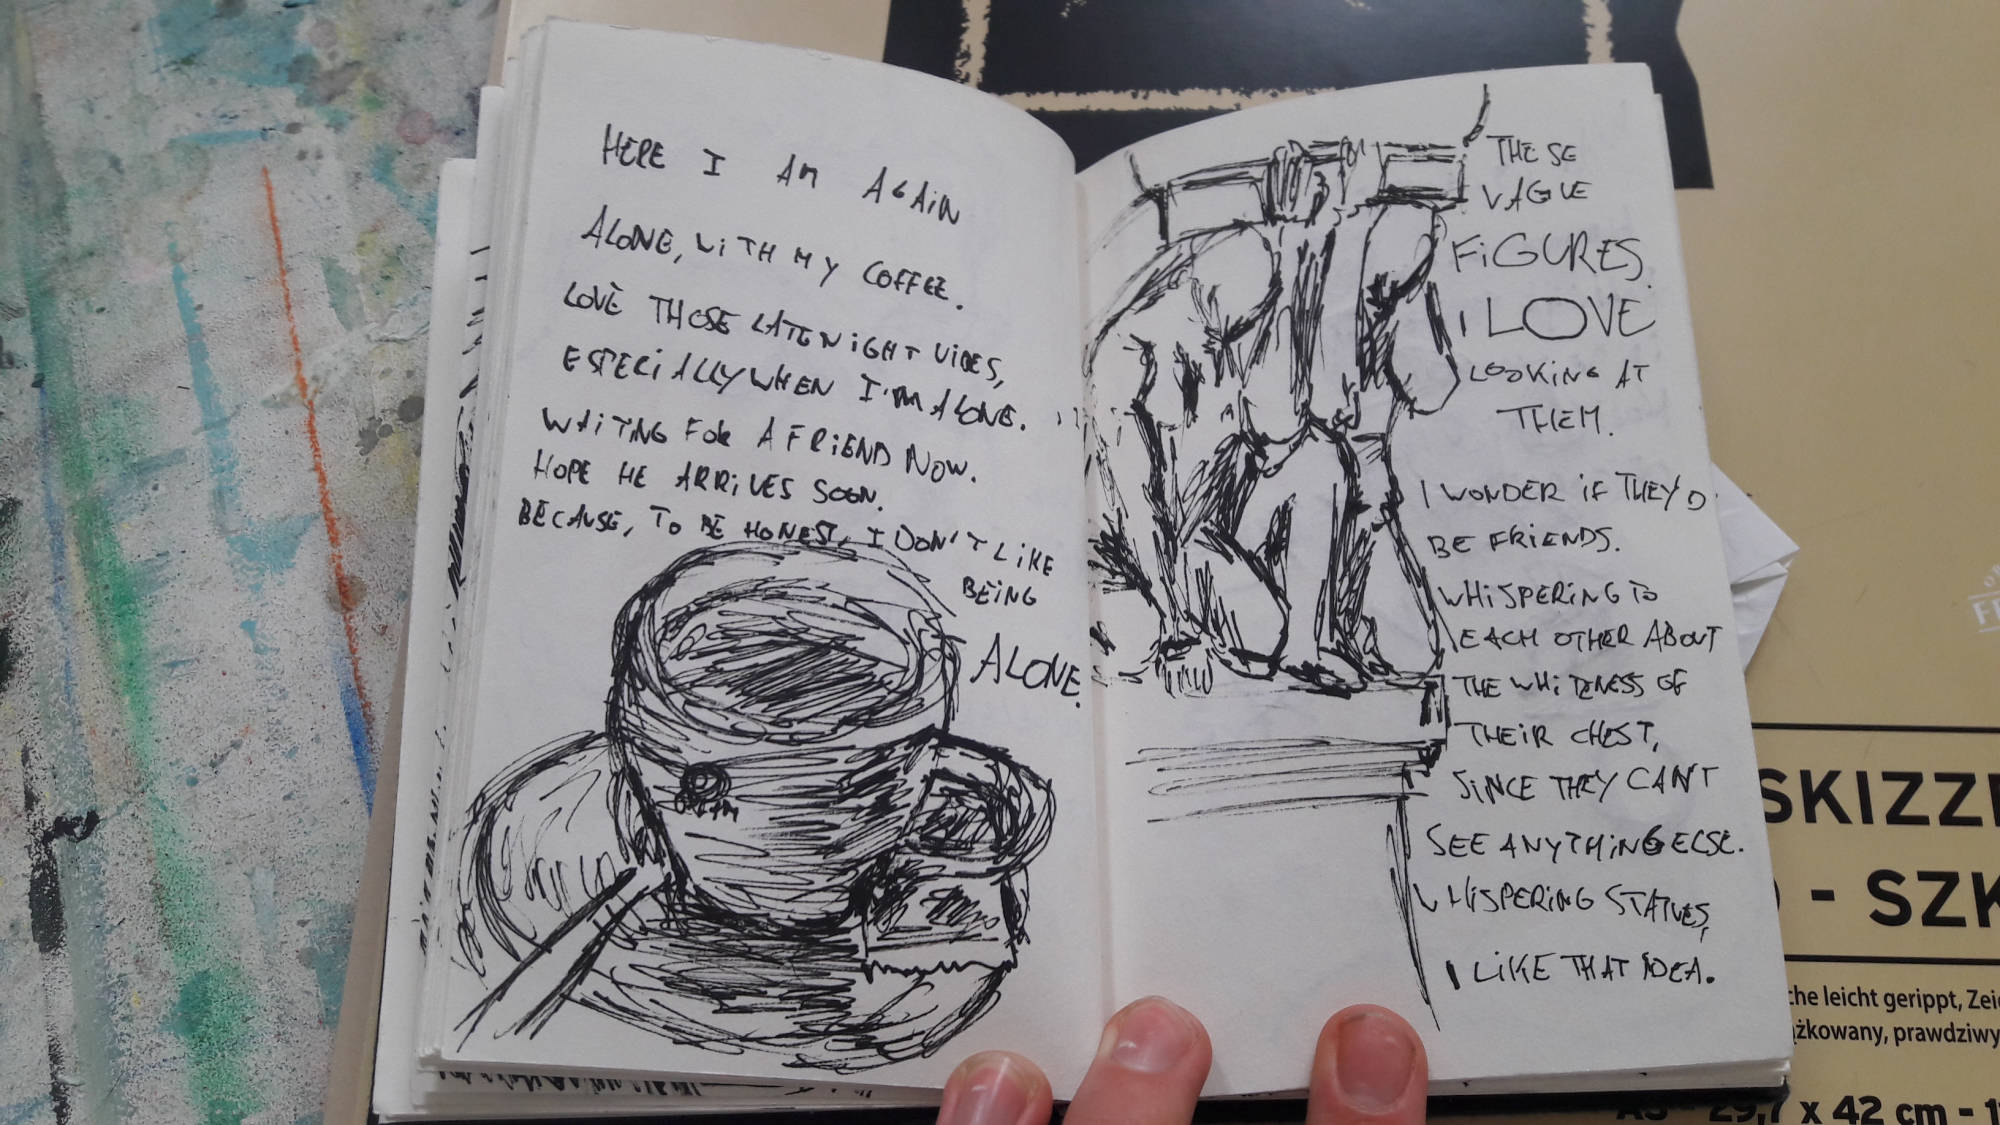 HERE I AM AGAIN
ALONE, WITH MY COFFEE.
LOVE THOSE LATE NIGHT VIBES,
ESPECIALLY WHEN I'M ALONE.
WAITING FOR A FRIEND NOW.
HOPE HE ARRIVES SOON.
BECAUSE, TO BE HONEST, I DON'T LIKE
BEING
ALONE.
THESE
VAGUE
FIGURES.
I LOVE
LOOKING AT
THEM.
I WONDER IF THEY'D
BE FRIENDS.
WHISPERING TO
EACH OTHER ABOUT
THE WHITENESS OF
THEIR CHEST,
SINCE THEY CAN'T
SEE ANYTHING ELSE.
WHISPERING STATUES,
I LIKE THAT IDEA.
SKIZZE
- SZK
che leicht gerippt, Zei
ążkowany, prawdziwy
A3 - 29,7 x 42 cm - 1